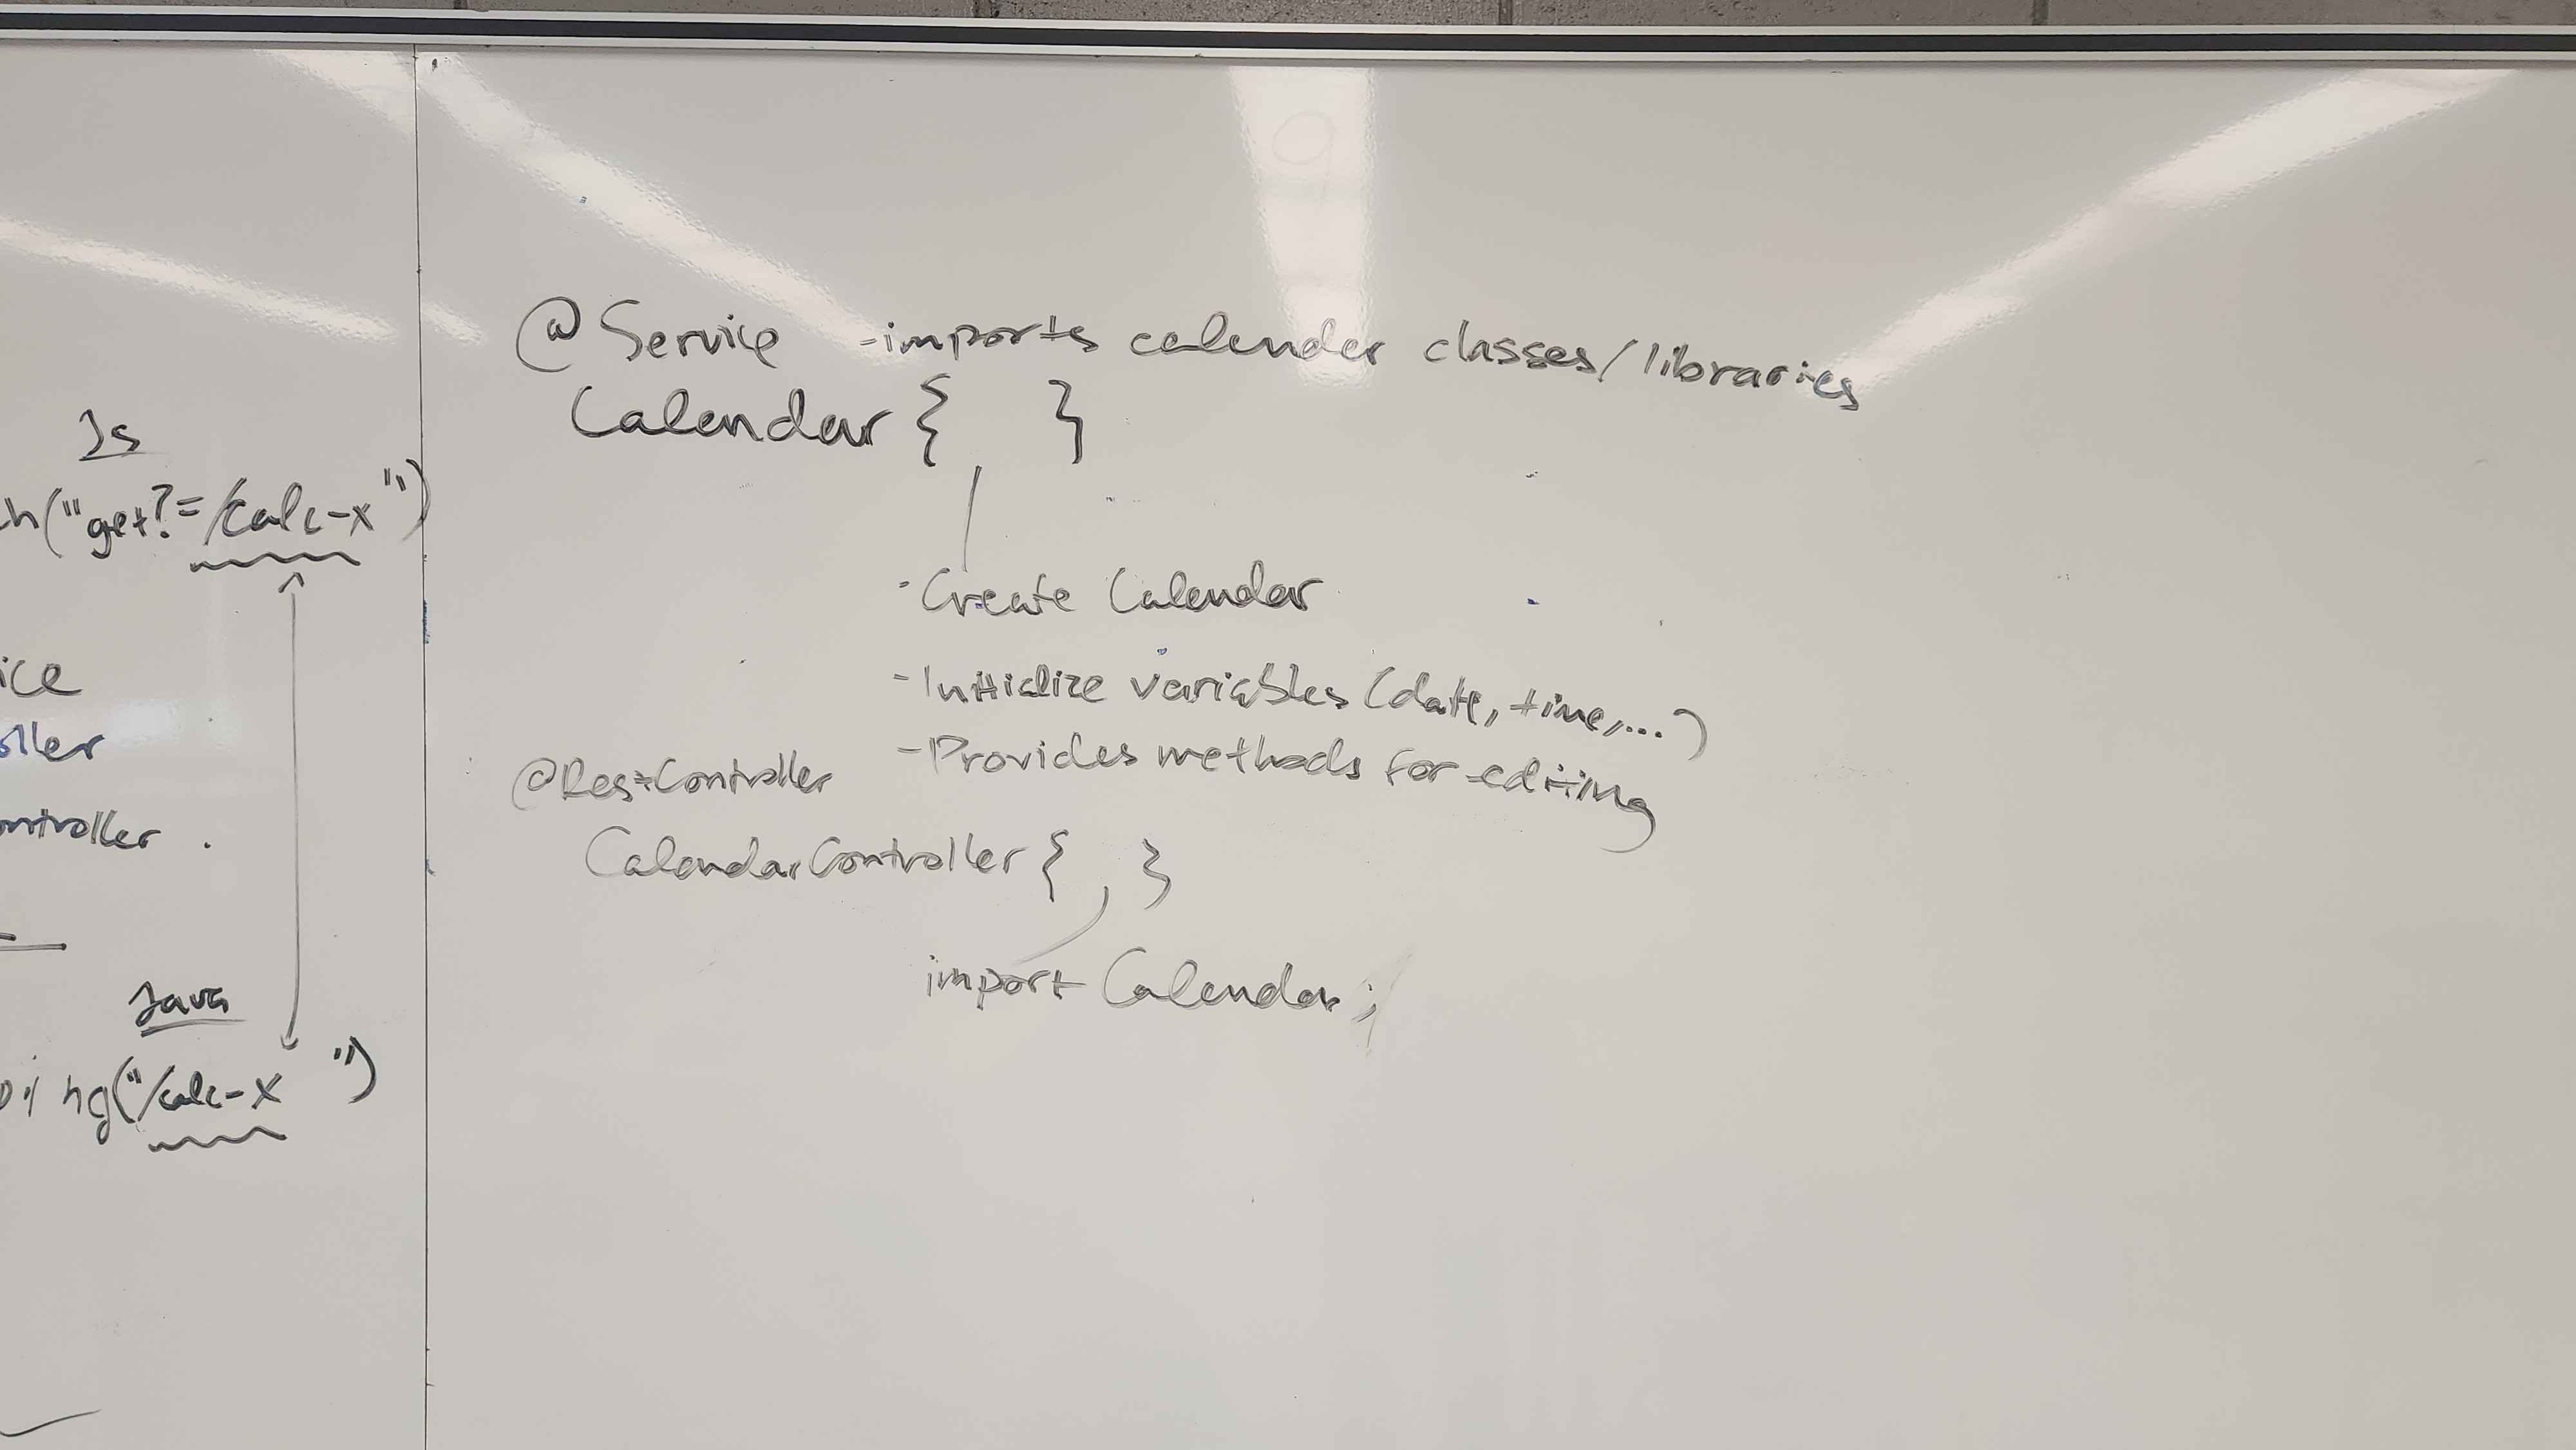 Js
ch("get?=/calc-x")
ice
oller
ontroller .
Java
ping("/calc-x ")
@Service -imports calender classes/libraries
Calendar { }
-Create Calendar
-Initialize variables (date, time,...)
-Provides methods for editing
@RestController
CalendarController { }
import Calendar;